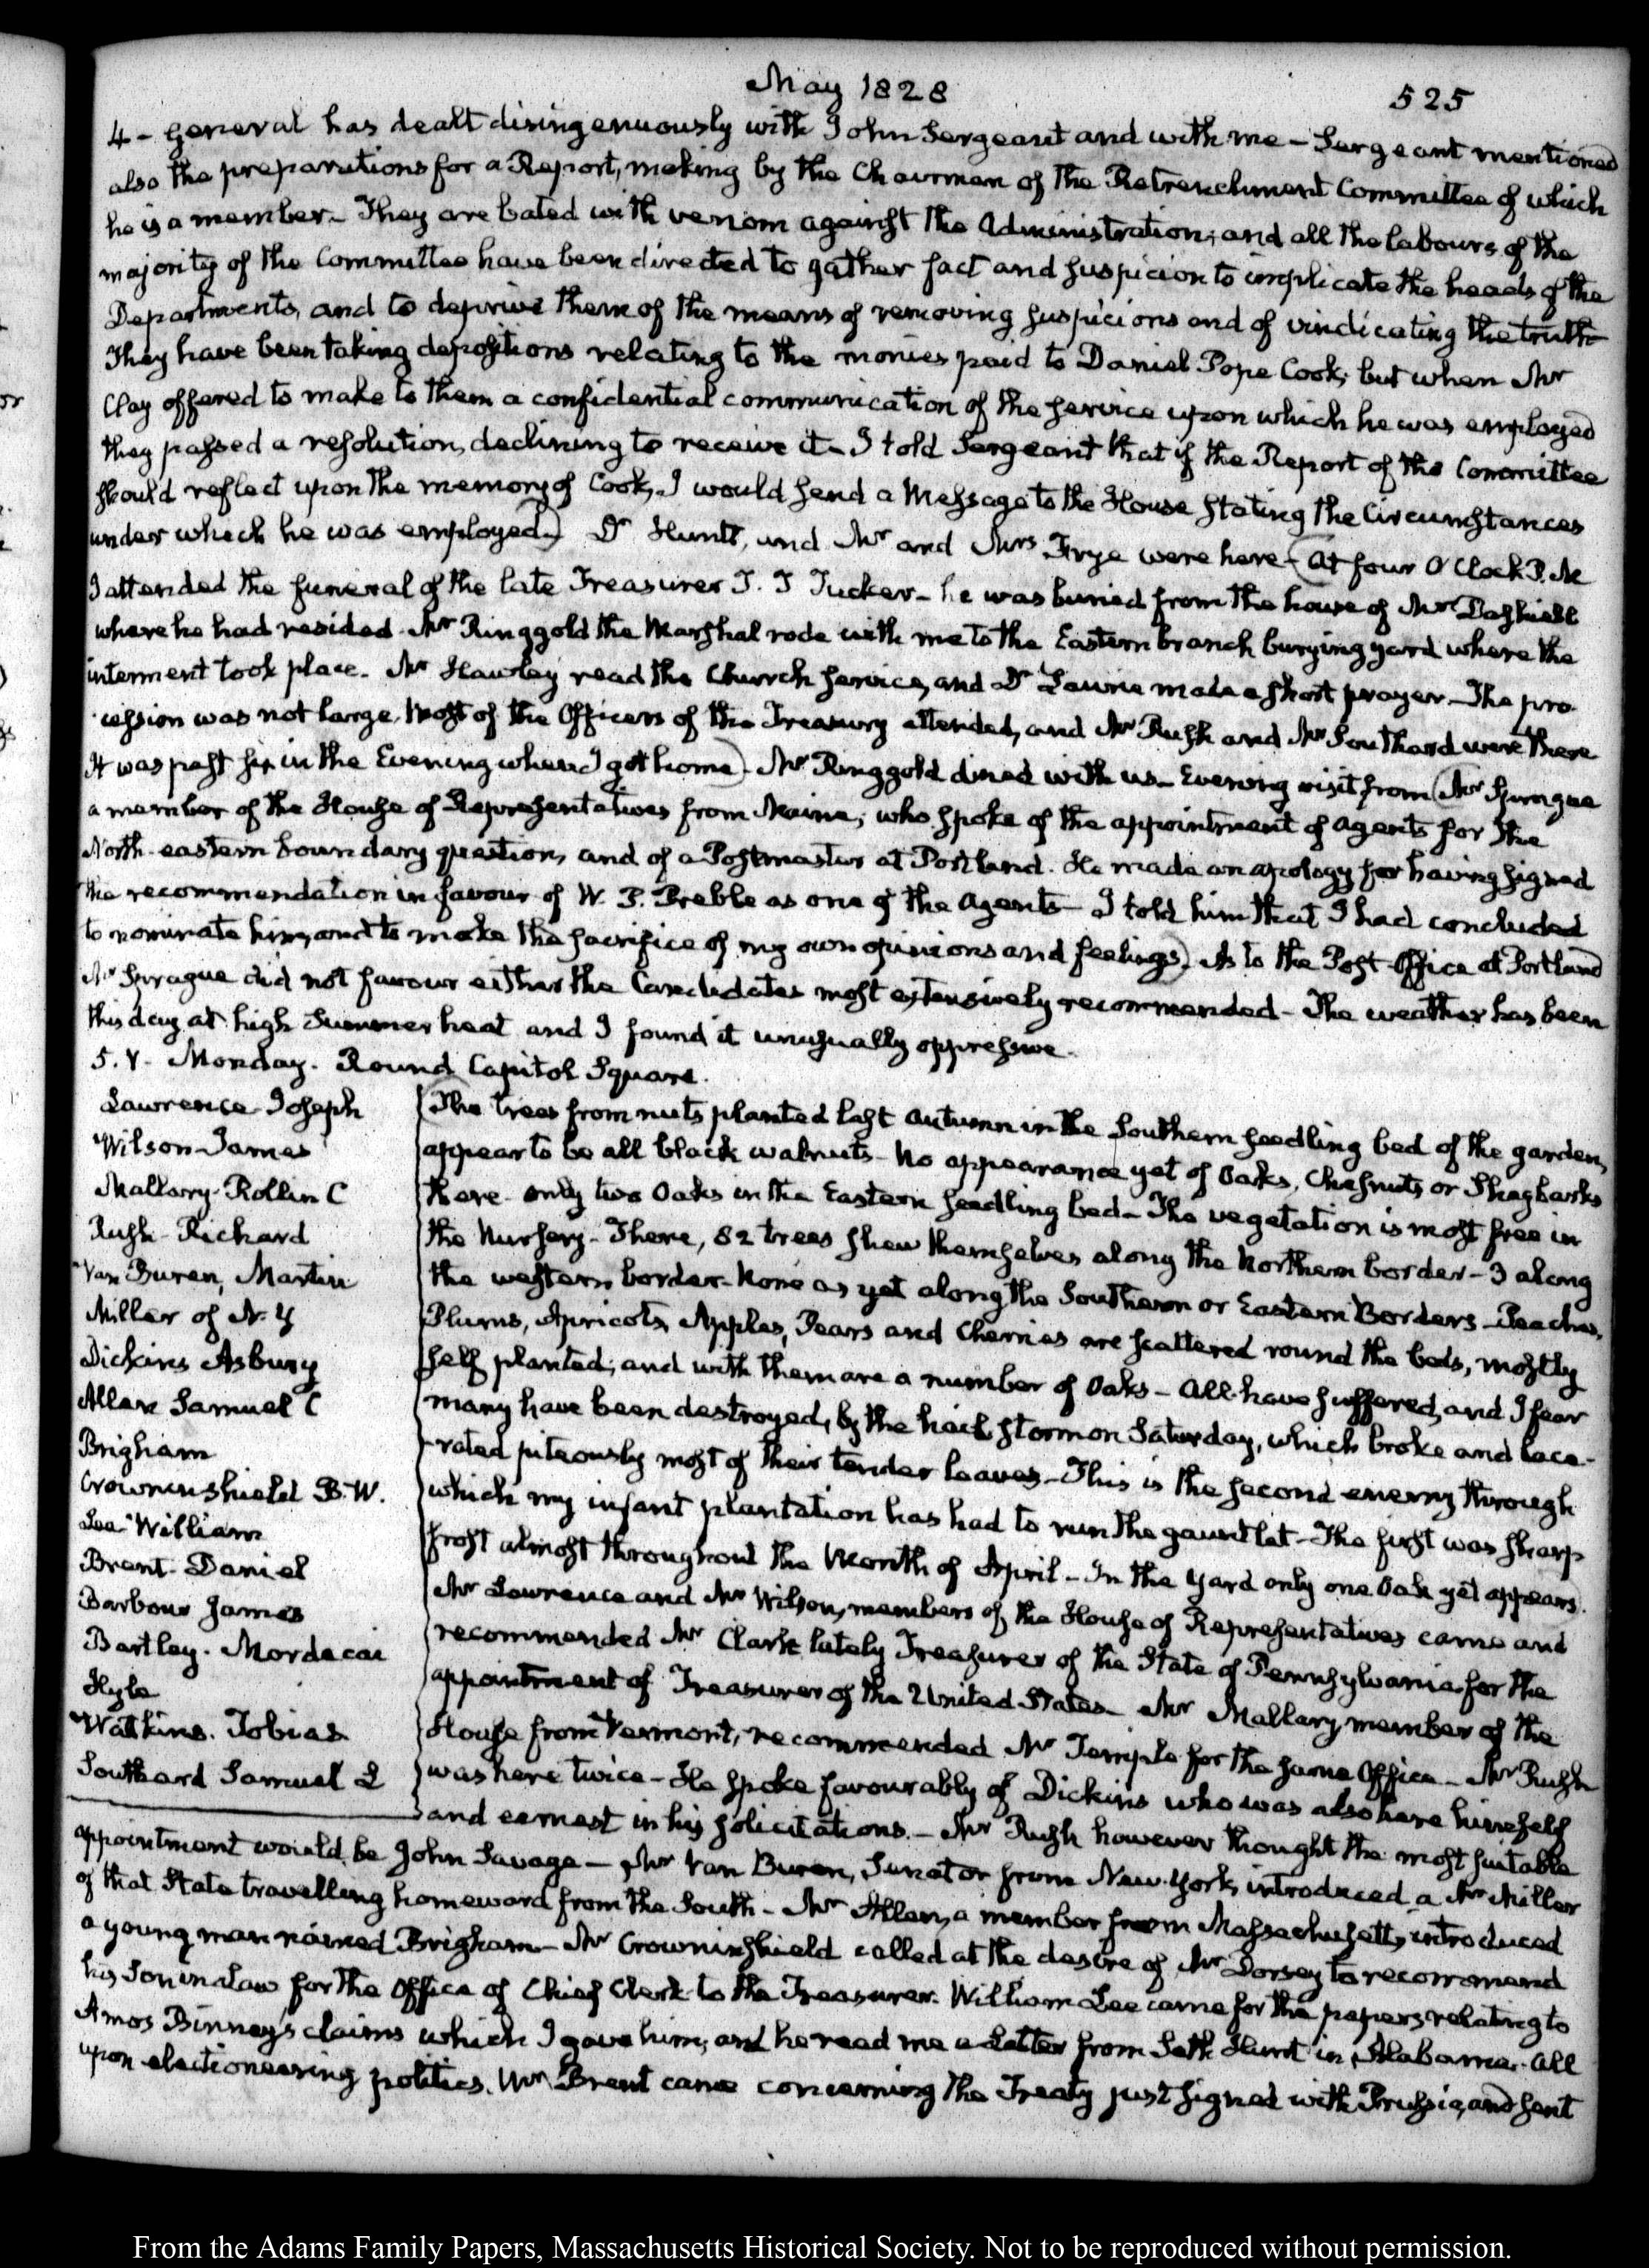 May 1828
525
4 - General has dealt disingenuously with John Sergeant and with me - Sergeant mentioned
also the preparations for a Report, making by the Chairman of the Retrenchment Committee of which
he is a member - They are bated with venom against the Administration; and all the labours of the
majority of the Committee have been directed to gather fact and suspicion to implicate the heads of the
Departments, and to deprive them of the means of removing suspicions and of vindicating the truth
They have been taking depositions relating to the monies paid to Daniel Pope Cook; but when Mr
Clay offered to make to them a confidential communication of the service upon which he was employed
they passed a resolution, declining to receive it - I told Sergeant that if the Report of the Committee
should reflect upon the memory of Cook, I would send a Message to the House stating the Circumstances
under which he was employed) Dr Huntt, and Mr and Mrs Frye were here - (At four O'Clock P. M
I attended the funeral of the late Treasurer T. T Tucker - he was buried from the house of Mr Dashiell
where he had resided. Mr Ringgold the Marshal rode with me to the Eastern branch burying yard where the
interment took place. Mr Hawley read the Church service, and Dr Laurie made a short prayer - The pro-
cession was not large. Most of the Officers of the Treasury attended, and Mr Rush and Mr Southard were there
It was past six in the Evening when I got home) - Mr Ringgold dined with us - Evening visit from (Mr Sprague
a member of the House of Representatives from Maine, who spoke of the appointment of agents for the
North-eastern boundary question, and of a Postmaster at Portland. He made an apology for having signed
the recommendation in favour of W. P. Preble as one of the Agents - I told him that I had concluded
to nominate him, and to make the sacrifice of my own opinions and feelings). As to the Post-Office at Portland
Mr Sprague did not favour either the Candidates most extensively recommended - The weather has been
this day at high Summer heat and I found it unusually oppressive.
5. V. Monday. Round Capitol Square.
Lawrence Joseph
Wilson James
Mallary Rollin C
Rush - Richard
Van Buren, Martin
Miller of N. Y
Dickins Asbury
Allen Samuel C
Brigham
Crowninshield B. W.
Lee William
Brent - Daniel
Barbour James
Bartley. Mordecai
Hyle
Watkins. Tobias
Southard Samuel L
(The trees from nuts planted last Autumn in the Southern seedling bed of the garden,
appear to be all black walnuts - No appearance yet of Oaks, Chesnuts, or Shagbarks
there - only two Oaks in the Eastern seedling bed - The vegetation is most free in
the Nursery - There, 82 trees shew themselves along the Northern border - 3 along
the western border - None as yet along the Southern or Eastern Borders - Peaches,
Plums, Apricots, Apples, Pears and Cherries are scattered round the beds, mostly
self planted; and with them are a number of Oaks - All have suffered, and I fear
many have been destroyed, by the hail storm on Saturday, which broke and lace-
rated piteously most of their tender leaves - This is the second enemy through
which my infant plantation has had to run the gauntlet - The first was sharp
frost almost throughout the Month of April - In the Yard only one Oak yet appears.
Mr Lawrence and Mr Wilson, members of the House of Representatives came and
recommended Mr Clark lately Treasurer of the State of Pennsylvania for the
appointment of Treasurer of the United States - Mr Mallary, member of the
House from Vermont, recommended Mr Temple for the same Office - Mr Rush
was here twice - He spoke favourably of Dickins who was also here himself
and earnest in his solicitations. - Mr Rush however thought the most suitable
appointment would be John Savage - Mr Van Buren, Senator from New-York, introduced a Mr Miller
of that State travelling homeward from the South - Mr Allen, a member from Massachusetts, introduced
a young man named Brigham - Mr Crowninshield called at the desire of Mr Dorsey to recommend
his Son in Law for the Office of Chief Clerk to the Treasurer. William Lee came for the papers relating to
Amos Binney's claims which I gave him; and he read me a Letter from Seth Hunt in Alabama. All
upon electioneering politics. Mr Brent came concerning the Treaty just signed with Prussia, and sent
From the Adams Family Papers, Massachusetts Historical Society. Not to be reproduced without permission.